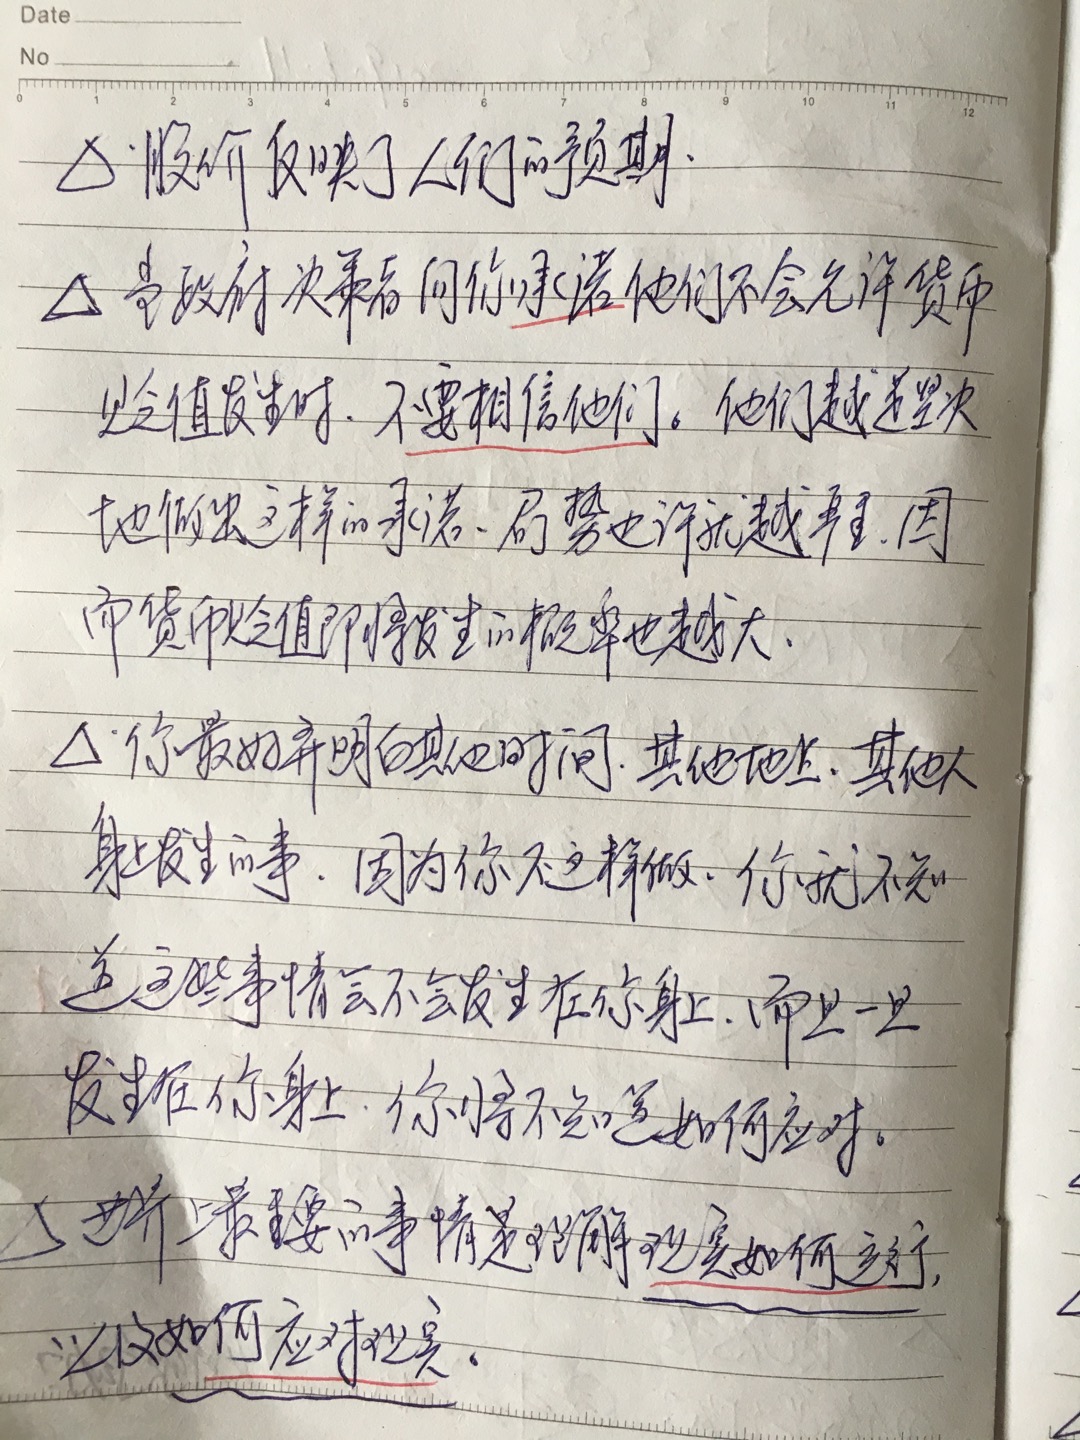 Date
No
0 1 2 3 4 5 6 7 8 9 10 11 12
△·股价反映了人们的预期.
△ 当政府决策者向你承诺他们不会允许货币
贬值发生时.不要相信他们。他们越是坚决
地做出这样的承诺、局势也许就越严重.因
而货币贬值即将发生的概率也越大.
△·你最好弄明白其他时间.其他地点.其他人
身上发生的事.因为你不这样做.你就不知
道这些事情会不会发生在你身上.而且一旦
发生在你身上.你将不知道如何应对。
△ 世界上最重要的事情是理解现实如何运行,
以及如何应对现实。